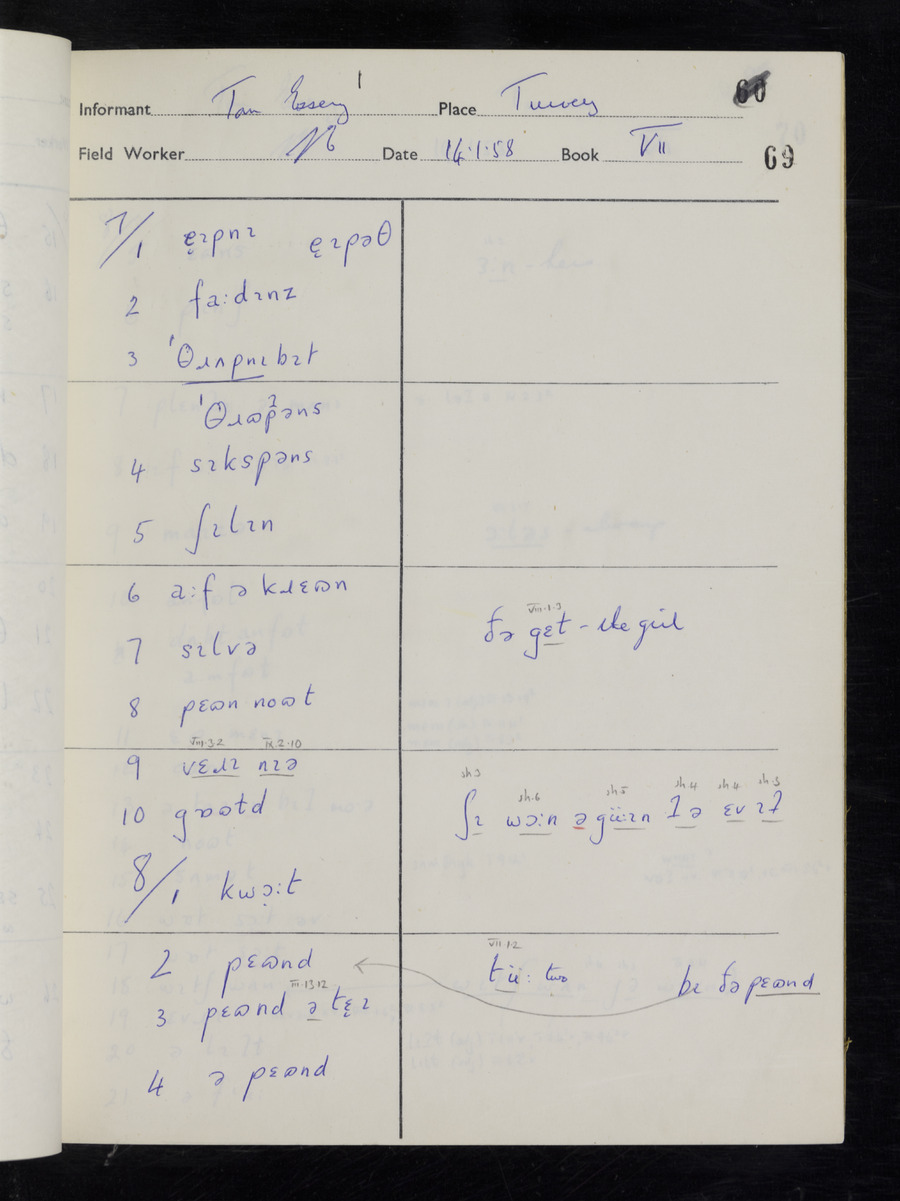 Informant Tom Place Turvey 60
Field Worker Date 14.1.58 Book VII 69
7/1 ę̣ɪpnɪ ę̣ɪpəθ
2 fa:dɪnz
3 'θɹʌpnɪ bɪt
'θɹɷpəns
4 sɪkspəns
5 ʃɪlɪn
6 a:f ə kɹɛɷn
ðə gɛt - the girl
VIII.1.3
7 sɪlvə
8 pɛɷn noɷt
VIII.3.2 IX.2.10
9 vɛɹɪ nɪə
10 gɒɷtd
sh.3 sh.6 sh.5 sh.4 sh.4 sh.3
ʃɪ wɔ:n ə gü:ɪn ɪə ɛv ɪt
8/1 kwɔ̣:t
2 pɛɷnd
VII.1.2
tü: two bɪ ðə pɛɷnd
III.13.12
3 pɛɷnd ə tɛ̣ɪ
4 ə pɛɷnd